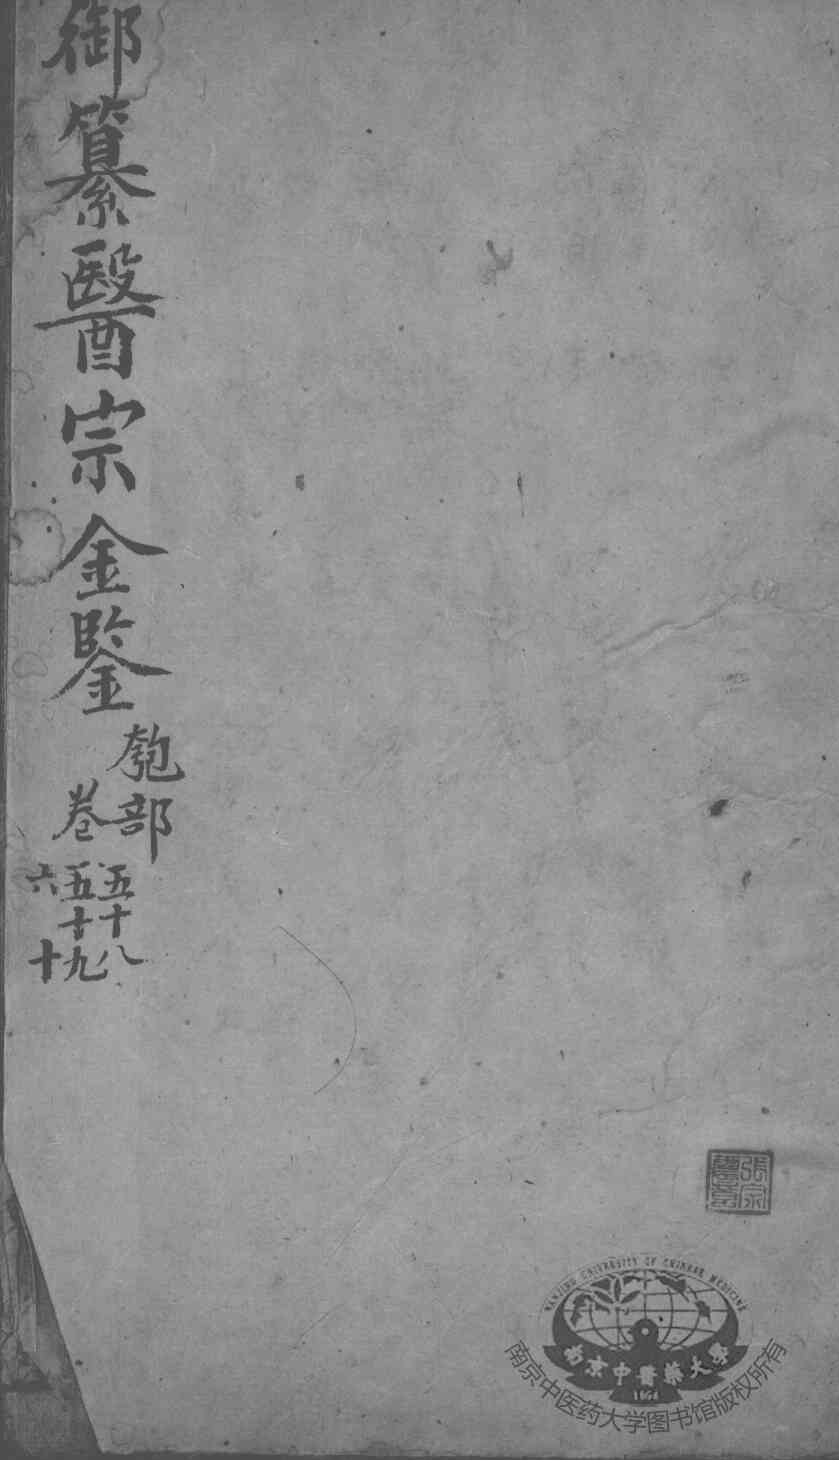 御纂醫宗金鑒
匏部
卷
五十八
五十九
六十
張宗
NANJING UNIVERSITY OF CHINESE MEDICINE
南京中醫藥大學
1954
南京中医药大学图书馆版权所有